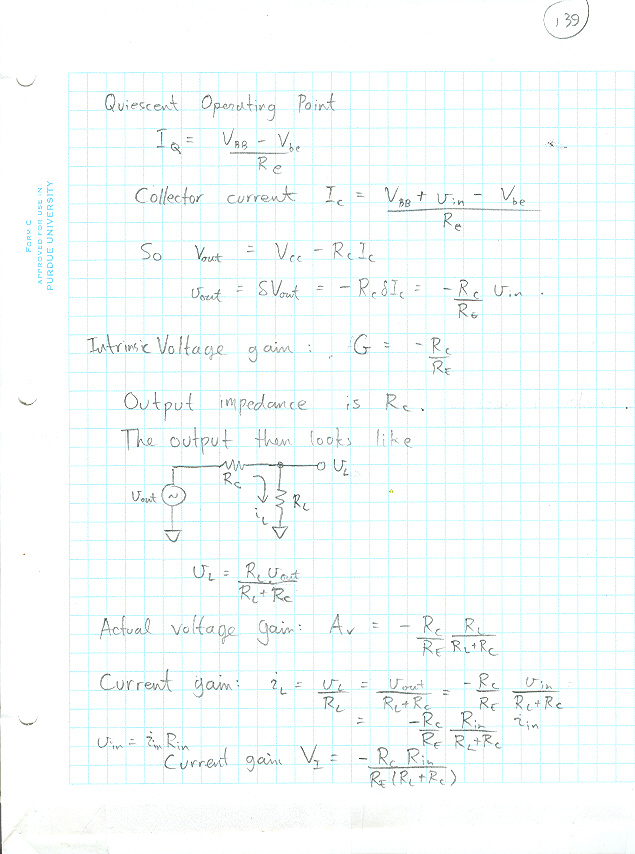 139
FORM C
APPROVED FOR USE IN
PURDUE UNIVERSITY
Quiescent Operating Point
I_Q = (V_BB - V_be) / R_e
Collector current I_c = (V_BB + v_in - V_be) / R_e
So V_out = V_cc - R_c I_c
v_out = δV_out = - R_c δI_c = -R_c / R_e v_in .
Intrinsic Voltage gain : G = - R_c / R_E
Output impedance is R_c.
The output then looks like
v_out ~ R_c i_L R_L v_L
v_L = R_L v_out / (R_L + R_c)
Actual voltage gain: A_v = - R_c / R_E R_L / (R_L + R_c)
Current gain: i_L = v_L / R_L = v_out / (R_L + R_c) = -R_c / R_E v_in / (R_L + R_c)
= -R_c / R_E R_in / (R_L + R_c) i_in
v_in = i_in R_in
Current gain V_I = - R_c R_in / (R_E (R_L + R_c))